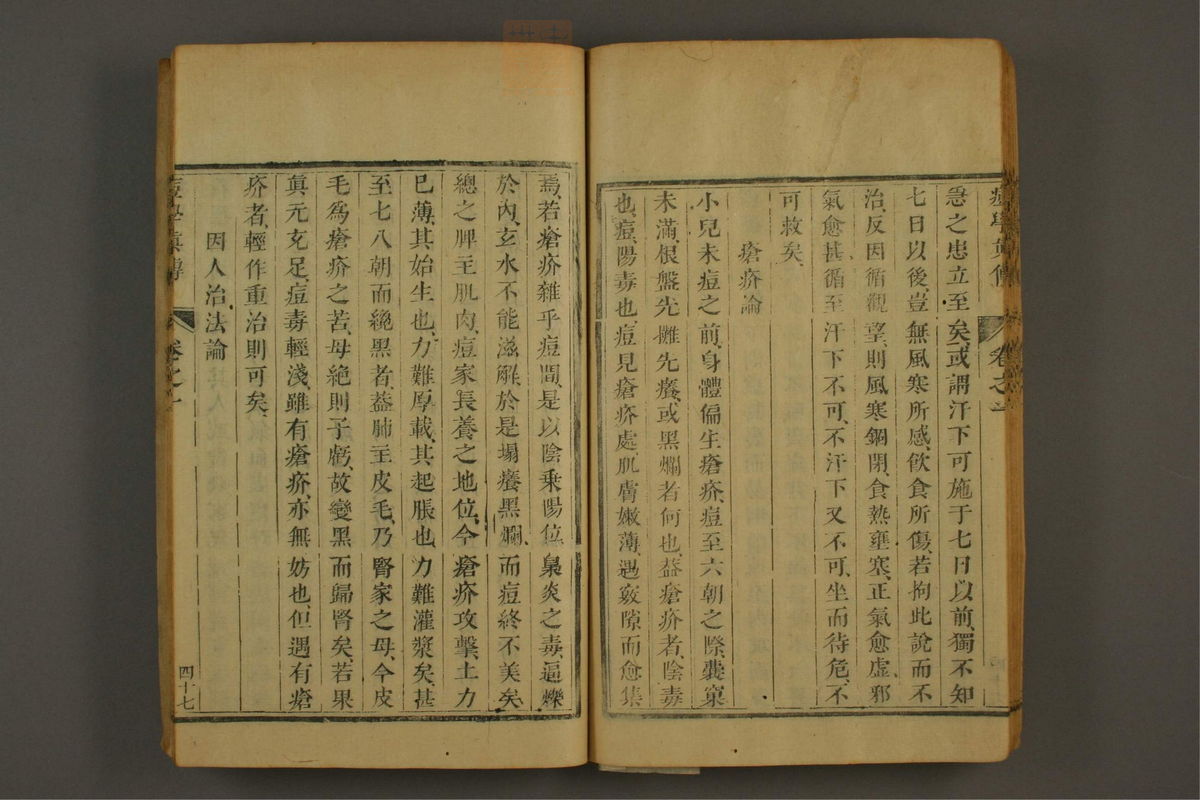 痘學眞傳 卷之一
急之患立至矣、或謂汗下可施于七日以前、獨不知
七日以後、豈無風寒所感、飲食所傷、若拘此說而不
治、反因循觀望、則風寒錮閉、食熱壅寒、正氣愈虛、邪
氣愈甚、循至汗下不可、不汗下又不可、坐而待危、不
可救矣、
瘡疥論
小兒未痘之前、身體偏生瘡疥、痘至六朝之際、囊窠
未滿、根盤先散先癢、或黑爛者何也、益瘡疥者、陰毒
也、痘、陽毒也、痘見瘡疥處、肌膚嫩薄、遇竅隙而愈集
焉、若瘡疥雜乎痘間、是以陰乘陽位、梟炎之毒、逼爍
於內、玄水不能滋解、於是塌癢黑爛、而痘終不美矣、
總之脾主肌肉、痘家長養之地位、今瘡疥攻擊、土力
已薄、其始生也、力難厚載、其起脹也、力難灌漿矣、甚
至七八朝而絶黑者、葢肺主皮毛、乃腎家之母、今皮
毛爲瘡疥之苦、母絶則子虧、故變黑而歸腎矣、若果
眞元充足、痘毒輕淺、雖有瘡疥、亦無妨也、但遇有瘡
疥者、輕作重治則可矣、
因人治法論
痘學眞傳 卷之一 四十七